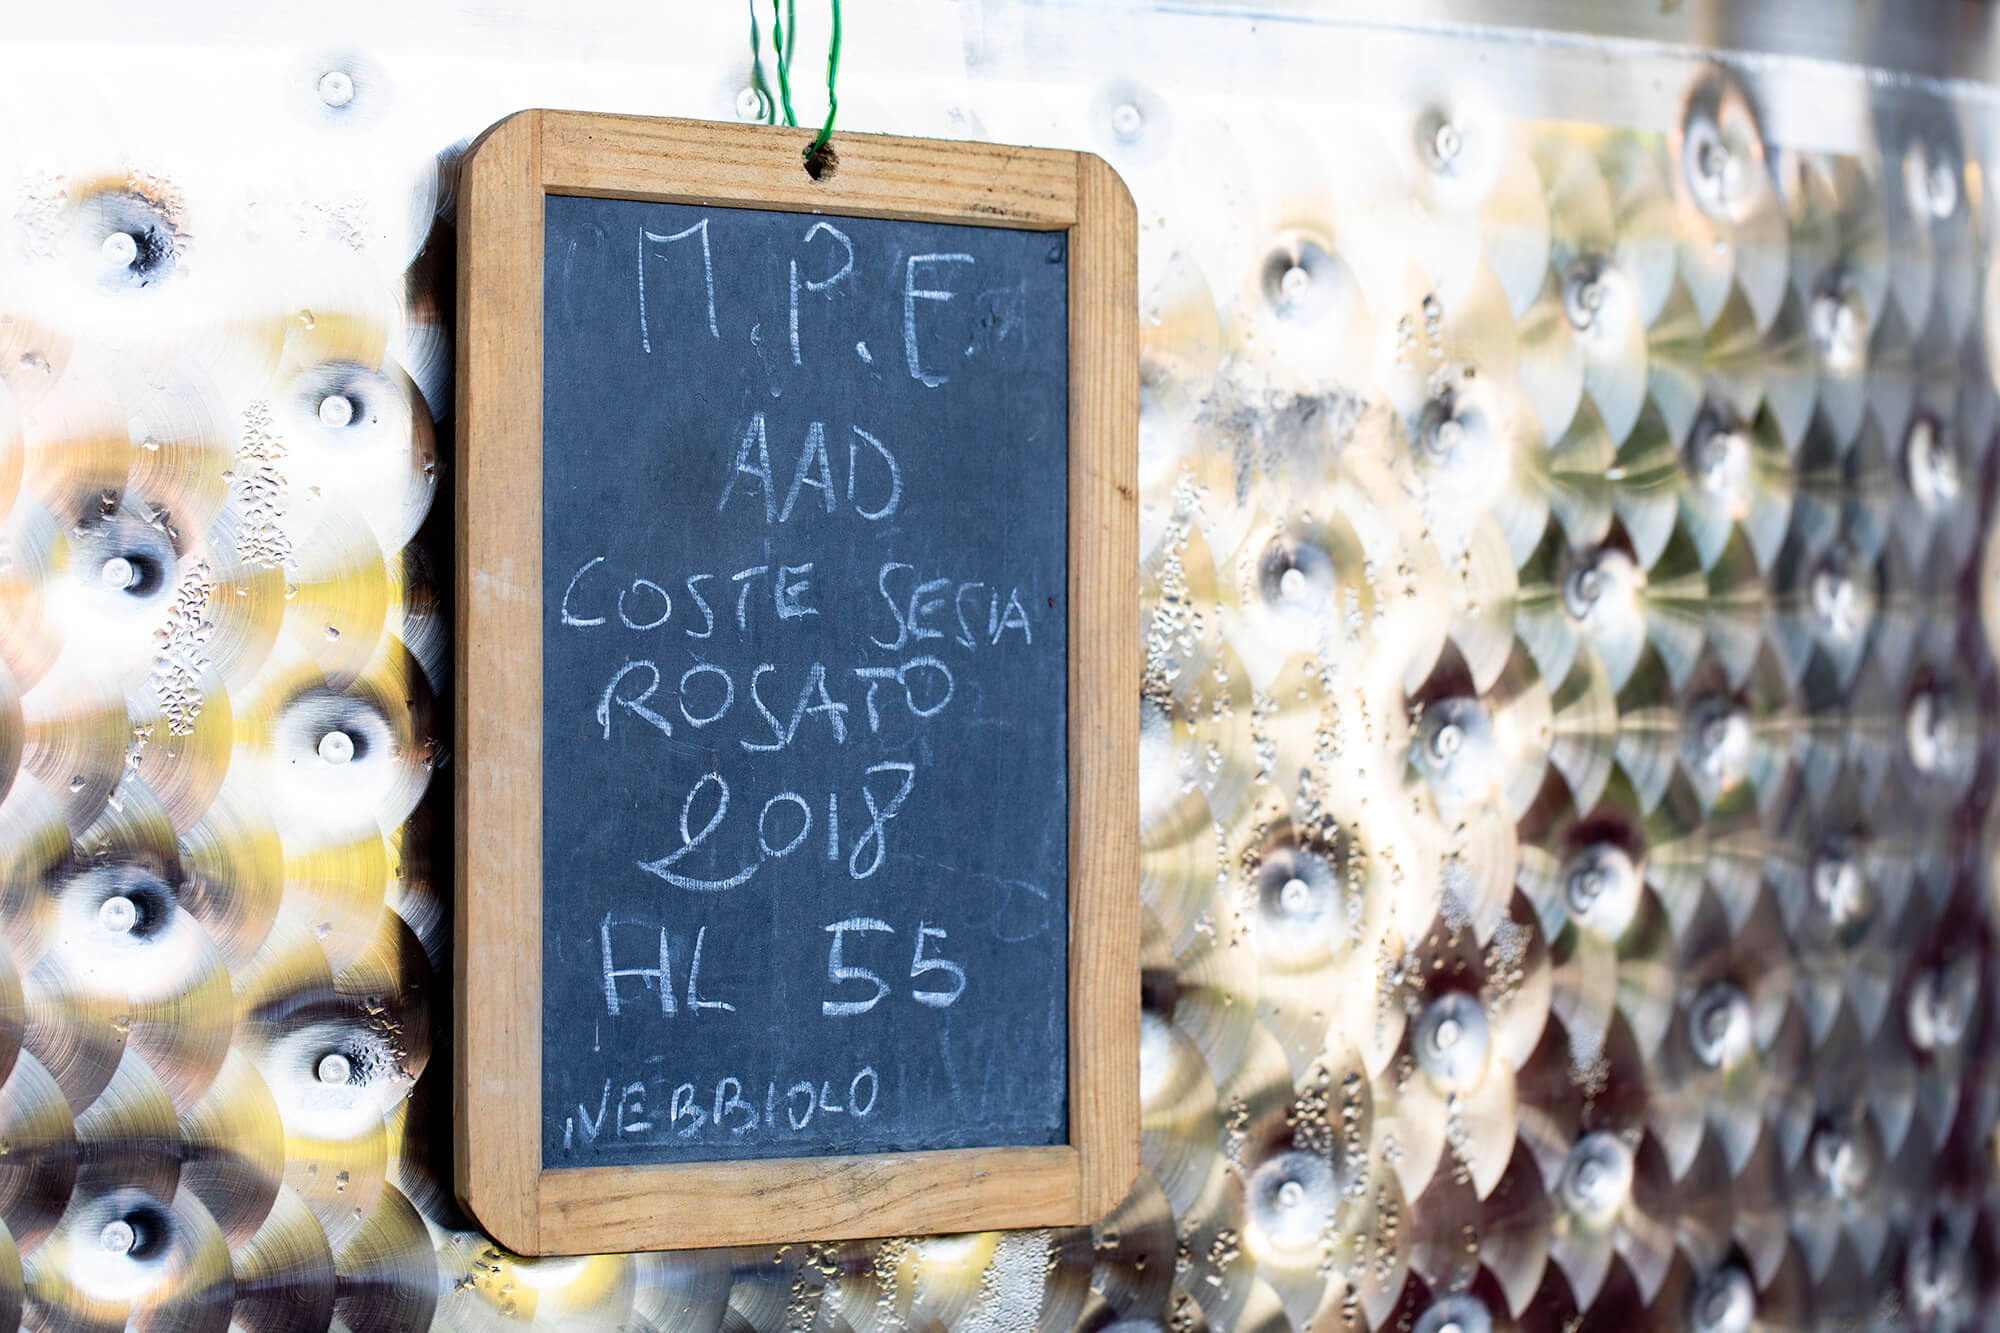 M.P.E
AAD
COSTE SESIA
ROSATO
2018
HL 55
NEBBIOLO